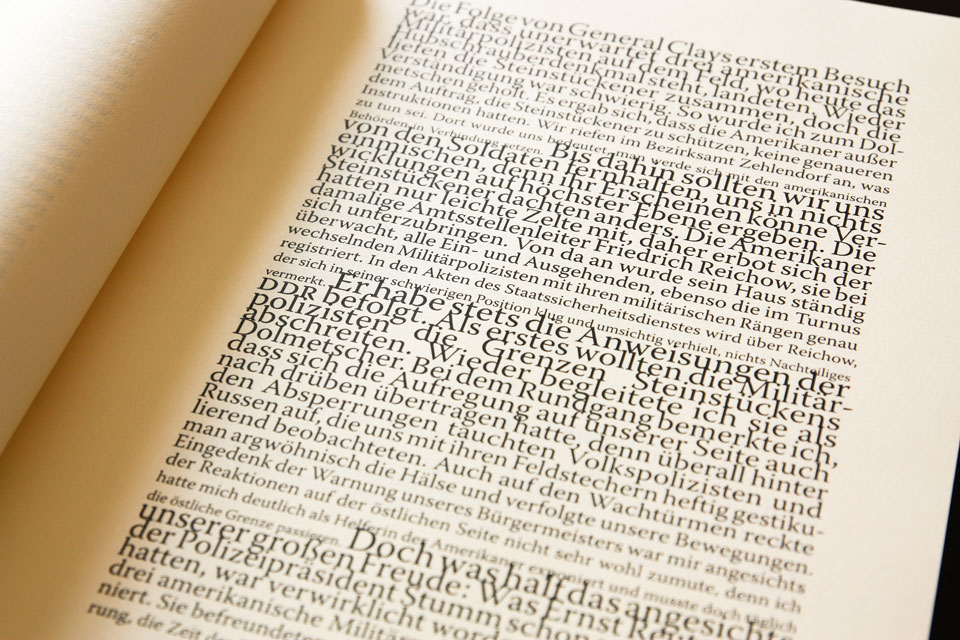 Die Folge von General Clays erstem Besuch
war, dass unerwartet drei amerikanische
Militärpolizisten auf dem Feld, wo heute das
Hubschrauberdenkmal steht, landeten. Wieder
liefen die Steinstückener zusammen, doch die
Verständigung war schwierig. So wurde ich zum Dol-
metschen geholt. Es ergab sich, dass die Amerikaner außer
dem Auftrag, die Steinstückener zu schützen, keine genaueren
Instruktionen hatten. Wir riefen im Bezirksamt Zehlendorf an, was
zu tun sei. Dort wurde uns bedeutet, man werde sich mit den amerikanischen
Behörden in Verbindung setzen. Bis dahin sollten wir uns
von den Soldaten fernhalten, uns in nichts
einmischen, denn ihr Erscheinen könne Ver-
wicklungen auf höchster Ebene ergeben. Die
Steinstückener dachten anders. Die Amerikaner
hatten nur leichte Zelte mit, daher erbot sich der
damalige Amtsstellenleiter Friedrich Reichow, sie bei
sich unterzubringen. Von da an wurde sein Haus ständig
überwacht, alle Ein- und Ausgehenden, ebenso die im Turnus
wechselnden Militärpolizisten mit ihren militärischen Rängen genau
registriert. In den Akten des Staatssicherheitsdienstes wird über Reichow,
der sich in seiner schwierigen Position klug und umsichtig verhielt, nichts Nachteiliges
vermerkt. Er habe stets die Anweisungen der
DDR befolgt. Als erstes wollten die Militär-
polizisten die Grenzen Steinstückens
abschreiten. Wieder begleitete ich sie als
Dolmetscher. Bei dem Rundgang bemerkte ich,
dass sich die Aufregung auf unserer Seite auch
nach drüben übertragen hatte, denn überall hinter
den Absperrungen tauchten Volkspolizisten und
Russen auf, die uns mit ihren Feldstechern heftig gestiku-
lierend beobachteten. Auch auf den Wachtürmen reckte
man argwöhnisch die Hälse und verfolgte unsere Bewegungen.
Eingedenk der Warnung unseres Bürgermeisters war mir angesichts
der Reaktionen auf der östlichen Seite nicht sehr wohl zumute, denn ich
hatte mich deutlich als Helferin der Amerikaner exponiert und musste doch täglich
die östliche Grenze passieren. Doch was half das angesichts
unserer großen Freude: Was Ernst Reuter
der Polizeipräsident Stumm schon
hatten, war verwirklicht
drei amerikanische
niert. Sie
rung, die Zeit